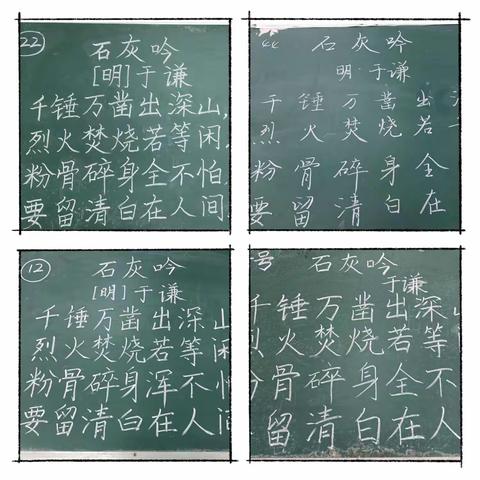 22
石灰吟
[明]于谦
千锤万凿出深山,
烈火焚烧若等闲,
粉骨碎身全不怕,
要留清白在人间.
石灰吟
明·于谦
千锤万凿出
烈火焚烧若
粉骨碎身全
要留清白在
12
石灰吟
[明]于谦
千锤万凿出深山
烈火焚烧若等闲
粉骨碎身浑不怕
要留清白在人间
号 石灰吟
于谦
千锤万凿出深
火焚烧若等
骨碎身全不
留清白在人